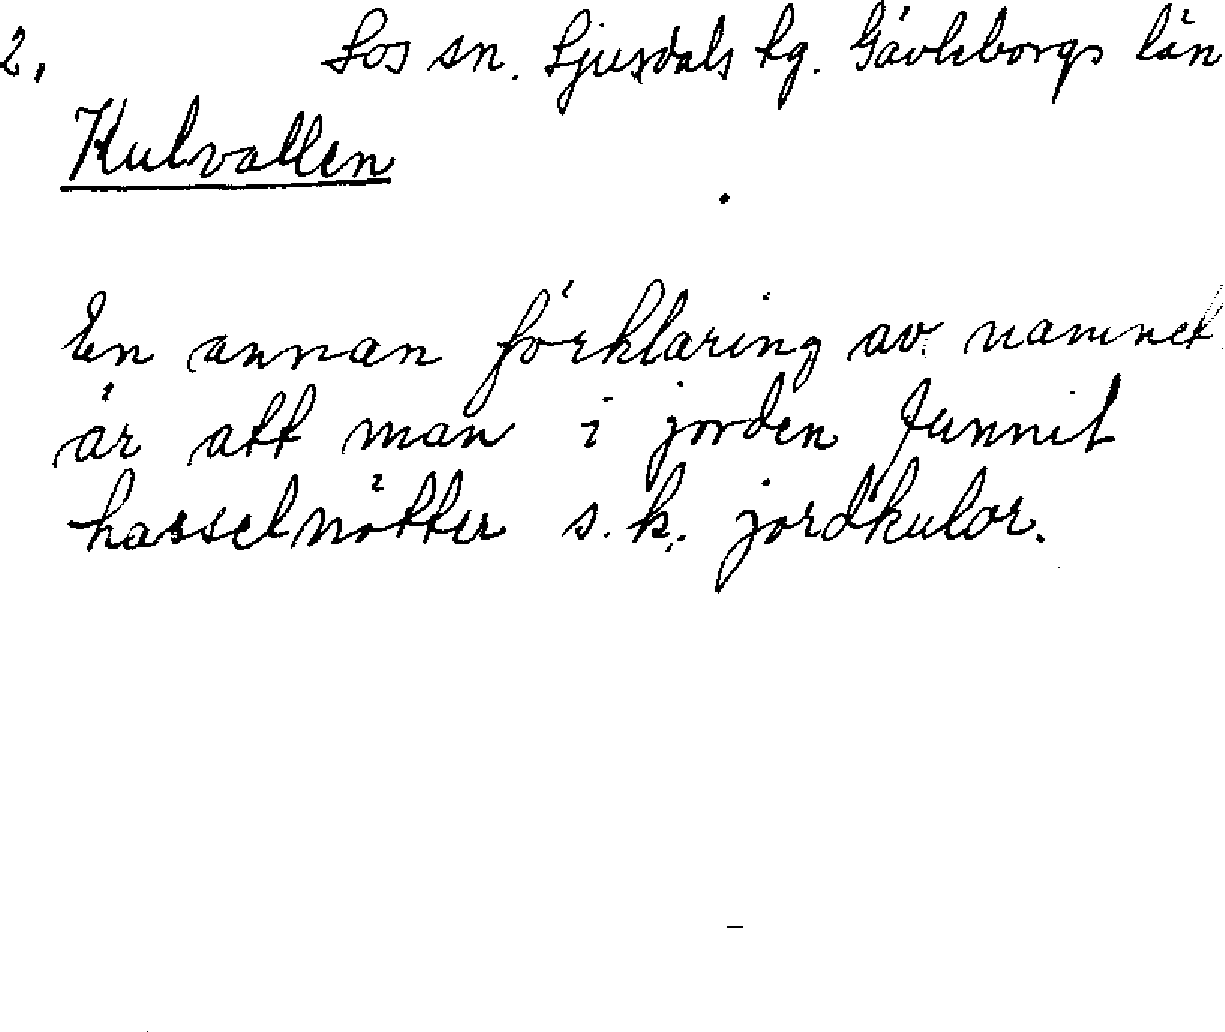 2. Los sn. Ljusdals tg. Gävleborgs län
Kulvallen
En annan förklaring av namnet
är att man i jorden funnit
hasselnötter s.k. jordkulor.